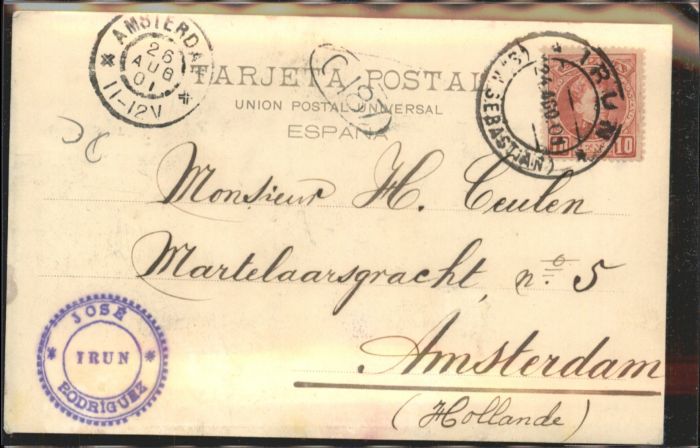 AMSTERDAM
26
AUG
01
11-12V
TARJETA POSTAL
UNION POSTAL UNIVERSAL
ESPAÑA
IRUN
(S.N SEBASTIAN)
10
Monsieur H. Ceulen
Martelaarsgracht, nº 5
Amsterdam
(Hollande)
JOSÉ
IRUN
RODRÍGUEZ